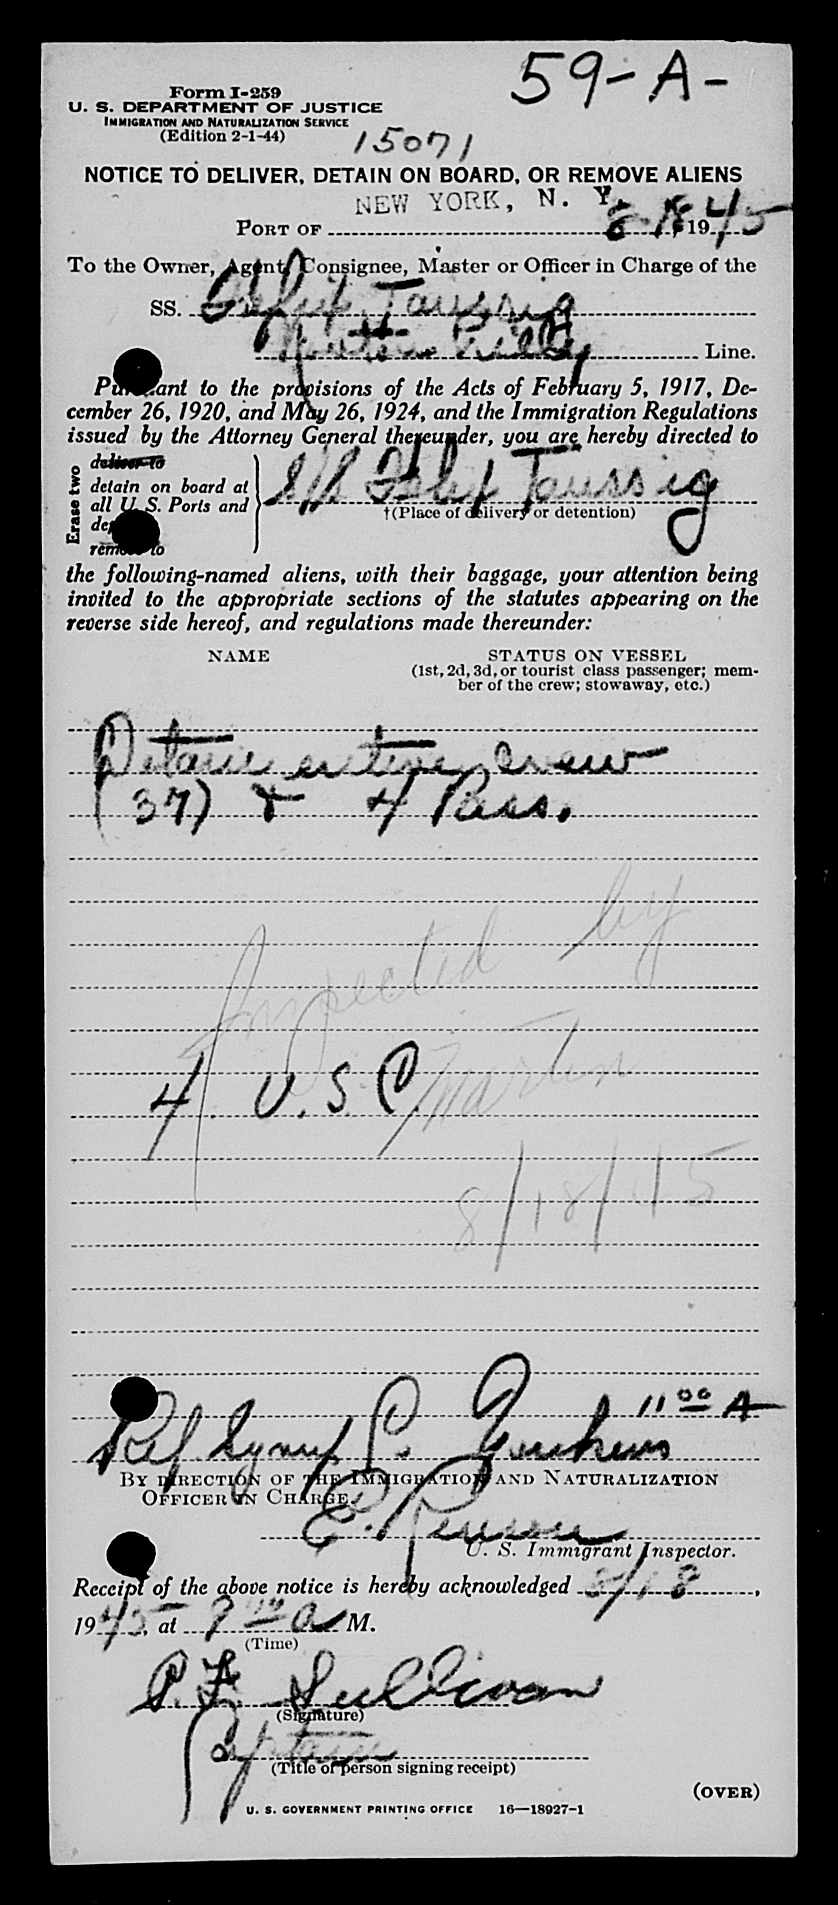 59-A-
Form I-259
U. S. DEPARTMENT OF JUSTICE
IMMIGRATION AND NATURALIZATION SERVICE
(Edition 2-1-44)
15071
NOTICE TO DELIVER, DETAIN ON BOARD, OR REMOVE ALIENS
NEW YORK, N. Y.
PORT OF 8-18, 1945
To the Owner, Agent, Consignee, Master or Officer in Charge of the
SS. Felix Taussig
Line.
Pursuant to the provisions of the Acts of February 5, 1917, De-
cember 26, 1920, and May 26, 1924, and the Immigration Regulations
issued by the Attorney General thereunder, you are hereby directed to
Erase two
deliver to
detain on board at
all U. S. Ports and
remove to
S/S Felix Taussig
†(Place of delivery or detention)
the following-named aliens, with their baggage, your attention being
invited to the appropriate sections of the statutes appearing on the
reverse side hereof, and regulations made thereunder:
NAME
STATUS ON VESSEL
(1st, 2d, 3d, or tourist class passenger; mem-
ber of the crew; stowaway, etc.)
Detain entire crew
(37) & 4 Pass.
Inspected by
Martin
4 U.S.C.
8/18/45
11 00 A
BY DIRECTION OF THE IMMIGRATION AND NATURALIZATION
OFFICER IN CHARGE.
E.
U. S. Immigrant Inspector.
Receipt of the above notice is hereby acknowledged 8/18,
1945, at 9 a M.
(Time)
P. F. Sullivan
(Signature)
Captain
(Title of person signing receipt)
(OVER)
U. S. GOVERNMENT PRINTING OFFICE 16—18927-1